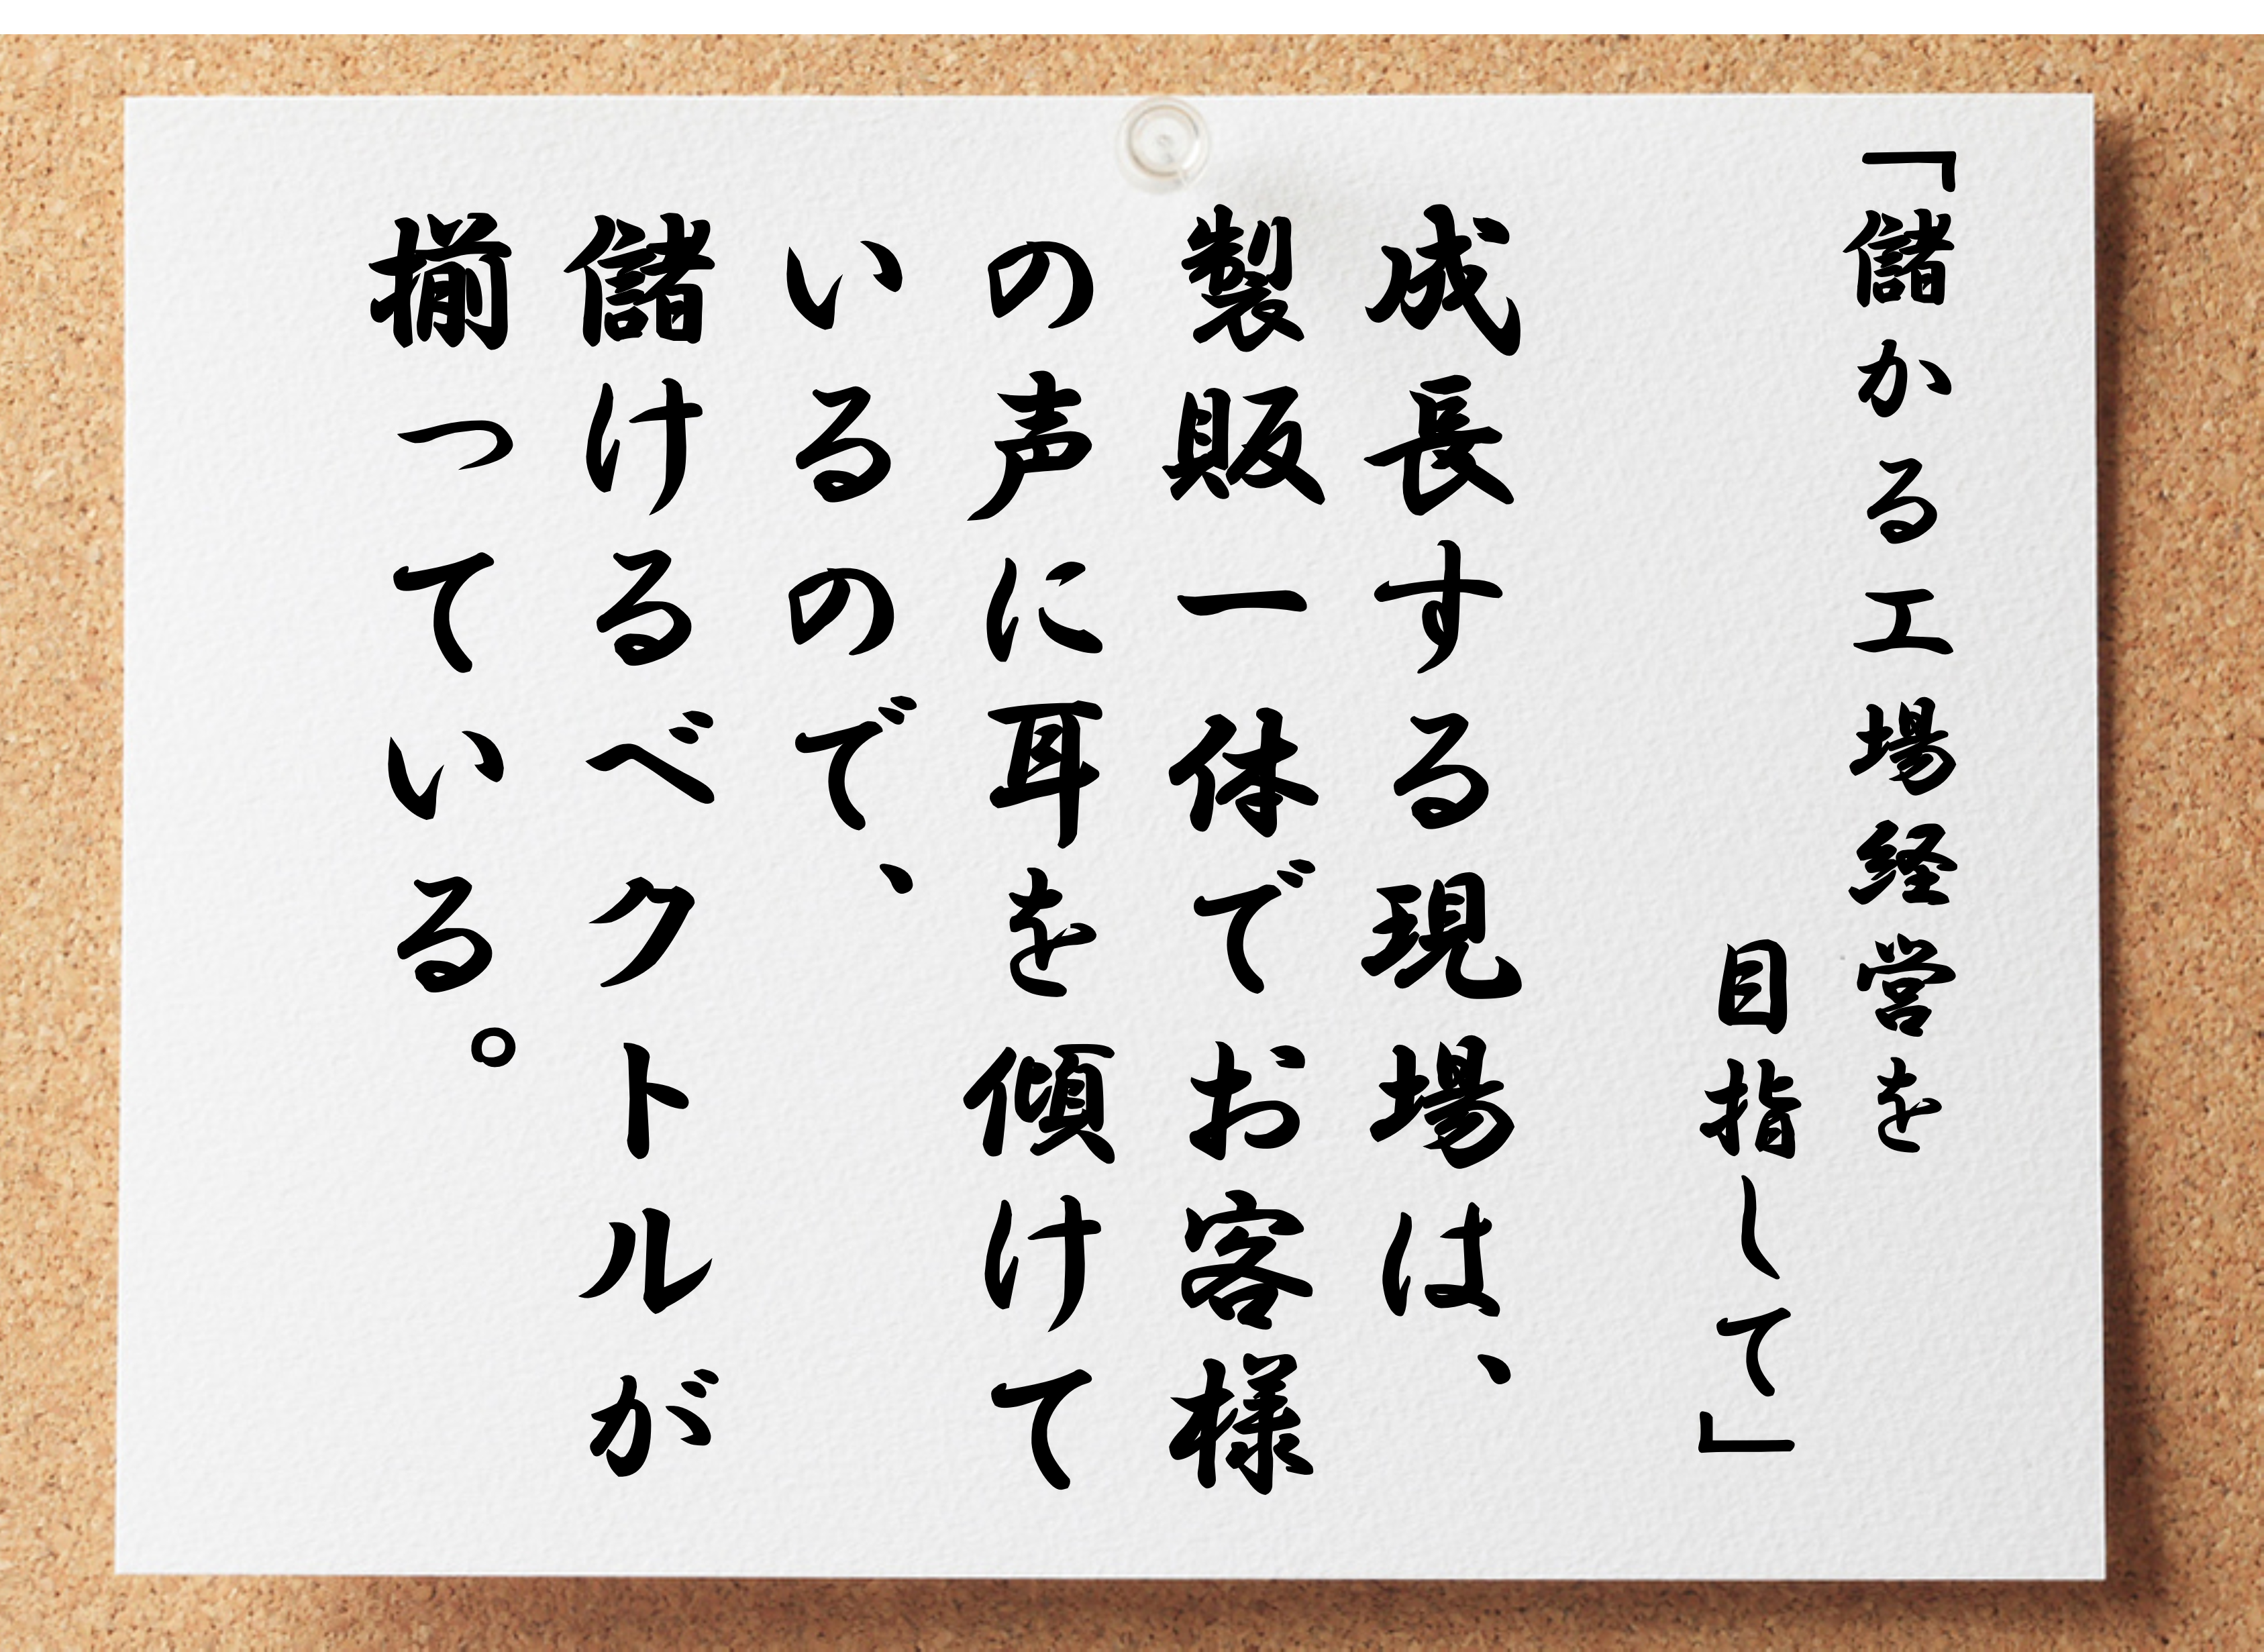 「儲かる工場経営を
目指して」
成長する現場は、
製販一体でお客様
の声に耳を傾けて
いるので、
儲けるベクトルが
揃っている。